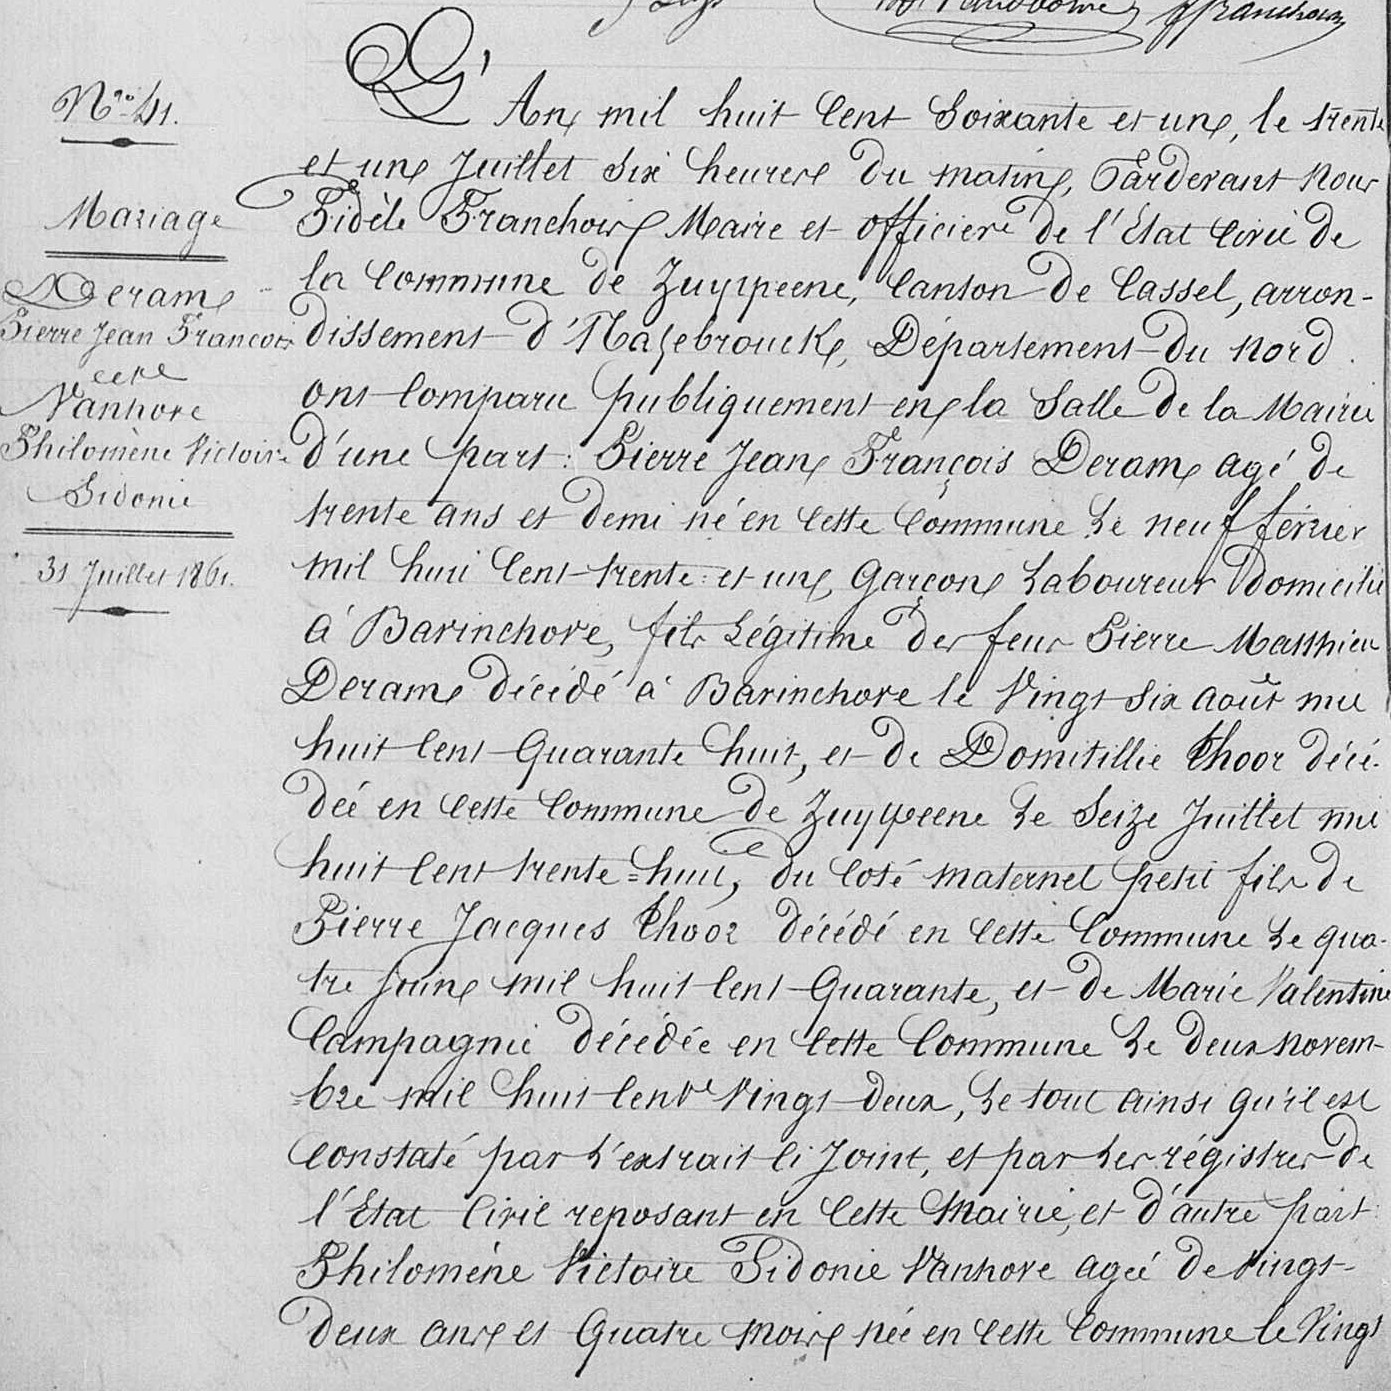 N.ro 41.
Mariage
Deram
Pierre Jean Francois
et
Vanhove
Philomène Victoire
Sidonie
31 Juillet 1861.
L'An mil huit Cent Soixante et un, le trente
et un Juillet Six heures du matin, Pardevant Nous
Fidèle Franchois Maire et officiere de l'Etat Civil de
la Commune de Zuytpeene, Canton de Cassel, arron-
dissement d'Hazebrouck, Département du Nord.
ont Comparu publiquement en la Salle de la Mairie
d'une part: Pierre Jean François Deram agé de
trente ans et demi né en Cette Commune Le neuf février
mil huit Cent trente et un, Garçon Laboureur domicilié
à Bavinchove, fils Légitime des feus Pierre Matthieu
Deram décédé à Bavinchove le Vingt Six août mil
huit Cent Quarante huit, et de Domitillie Thoor décé-
dée en Cette Commune de Zuytpeene Le Seize Juillet mil
huit Cent trente=huit, du Coté maternel petit fils de
Pierre Jacques Thoor décédé en Cette Commune Le qua-
tre Juin mil huit Cent Quarante, et de Marie Valentine
Campagnie décédée en Cette Commune Le deux novem-
=bre mil huit Cent Vingt deux, Le tout ainsi qu'il est
Constaté par L'extrait Ci Joint, et par Les régistres de
l'Etat Civil reposant en Cette Mairie, et d'autre part:
Philomène Victoire Sidonie Vanhove agée de vingt-
deux ans et Quatre mois née en Cette Commune le Vingt